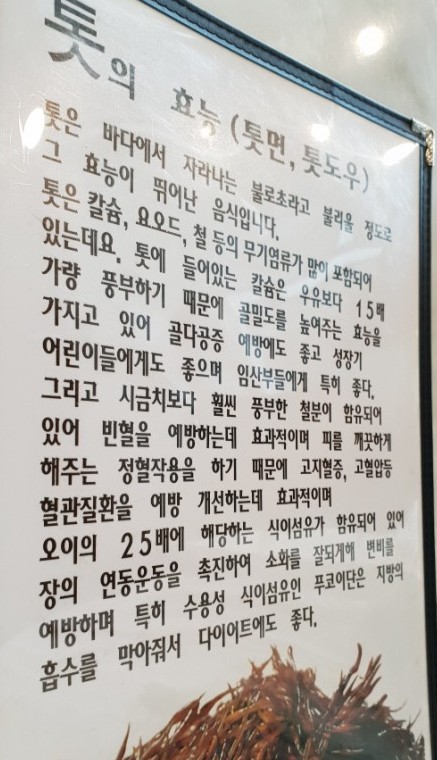 톳의 효능 (톳면, 톳도우)
톳은 바다에서 자라나는 불로초라고 불리울 정도로
그 효능이 뛰어난 음식입니다.
톳은 칼슘, 요오드, 철 등의 무기염류가 많이 포함되어
있는데요. 톳에 들어있는 칼슘은 우유보다 15배
가량 풍부하기 때문에 골밀도를 높여주는 효능을
가지고 있어 골다공증 예방에도 좋고 성장기
어린이들에게도 좋으며 임산부들에게 특히 좋다.
그리고 시금치보다 훨씬 풍부한 철분이 함유되어
있어 빈혈을 예방하는데 효과적이며 피를 깨끗하게
해주는 정혈작용을 하기 때문에 고지혈증, 고혈압등
혈관질환을 예방 개선하는데 효과적이며
오이의 25배에 해당하는 식이섬유가 함유되어 있어
장의 연동운동을 촉진하여 소화를 잘되게해 변비를
예방하며 특히 수용성 식이섬유인 푸코이단은 지방의
흡수를 막아줘서 다이어트에도 좋다.